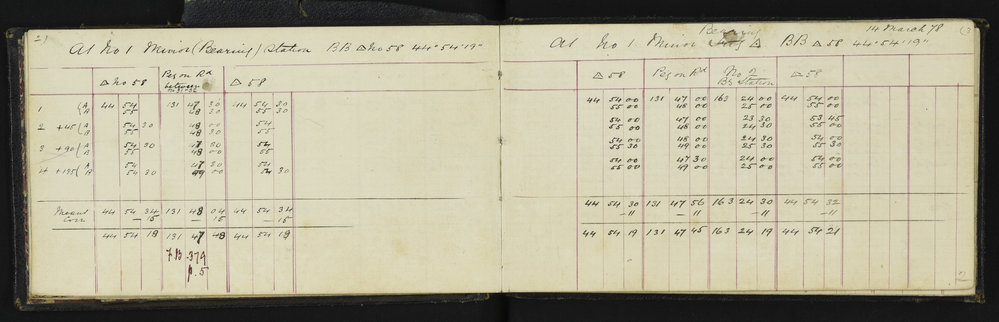 At No 1 Minor (Bearing) Station BB △ No 58 44°54'19"
△ No 58 Peg on Rd △ 58
between
1 (A 44 54 131 47 30 44 54 30
B 55 48 30 55 30
2 +45 (A 54 30 48 00 54
B 55 48 30 55
3 +90 (A 54 30 47 30 54
B 55 48 00 55
4 +135 (A 54 47 30 54
B 54 30 49 00 54 30
Means 44 54 34 131 48 04 44 54 34
Corr — 15 — 15 — 15
44 54 18 131 47 48 44 54 18
7.B .379
.5
Bearing 14 March 78 (3
At No 1 Minor △ BB △ 58 44°54'19"
△ 58 Peg on Rd No 2 △ 58
Bg Station
44 54 00 131 47 00 163 24 00 44 54 00
55 00 48 00 25 00 55 00
54 00 47 00 23 30 53 45
55 00 48 00 24 30 55 00
54 00 48 00 24 30 54 00
55 30 49 00 25 30 55 30
54 00 47 30 24 00 54 00
55 00 49 00 25 00 55 00
44 54 30 131 47 56 163 24 30 44 54 32
—11 —11 —11 —11
44 54 19 131 47 45 163 24 19 44 54 21